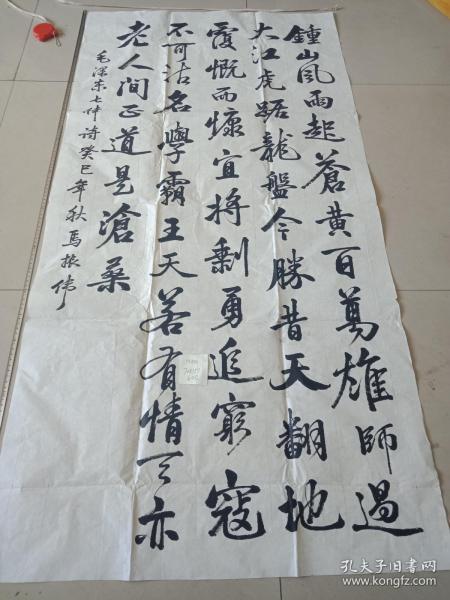 鍾山風雨起蒼黄百萬雄師過
大江虎踞龍盤今勝昔天翻地
覆慨而慷宜将剩勇追窮寇
不可沽名學霸王天若有情天亦
老人间正道是滄桑
毛澤东七律诗癸巳年秋馬振偉
孔夫子旧书网
www.kongfz.com